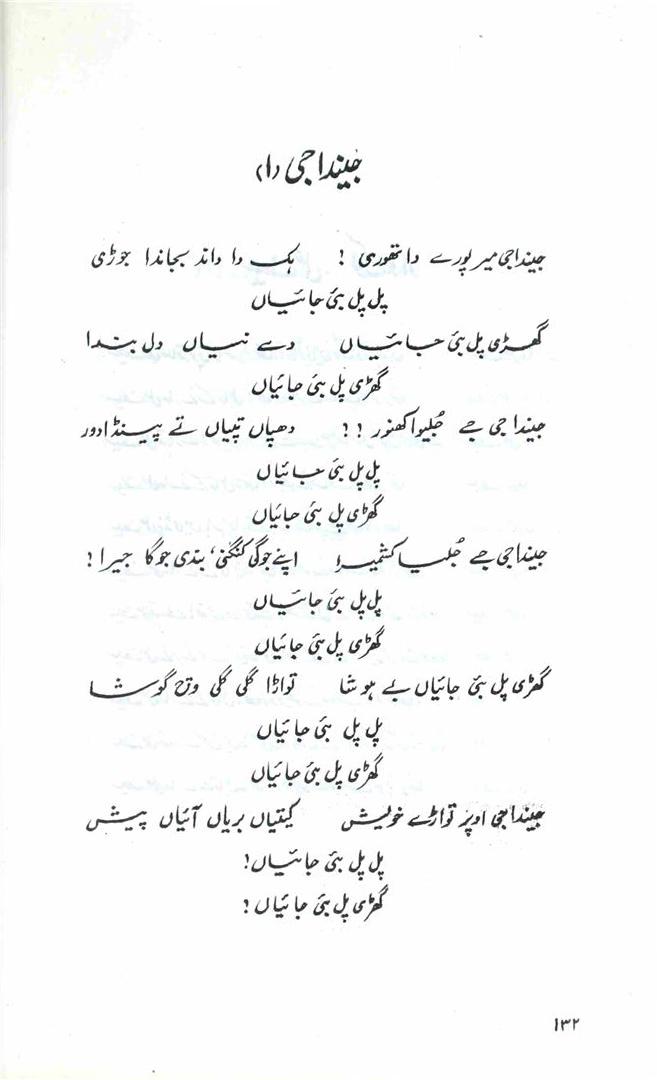 جیندا جی (۱)
جیندا جی میر لورے داتھوری ! ہک دا داند سبجاندا جوڑی
پل پل بئی جائیاں
گھڑی پل بئی جائیاں دسے نیاں دل بندا
گھڑی پل بئی جائیاں
جیندا جی جے جُلیو اکھنور !! دھپاں تپیاں تے پینڈا دور
پل پل بئی جائیاں
گھڑی پل بئی جائیاں
جیندا جی جے جُلیا کشمیرا اپنے جوگی کنگنی، بندی جوگا جیرا !
پل پل بئی جائیاں
گھڑی پل بئی جائیاں
گھڑی پل بئی جائیاں بے ہوشا تواڑا گلی گلی وچ گوشا
پل پل بئی جائیاں
گھڑی پل بئی جائیاں
جیندا جی اوپر تواڑے خویش کیتیاں بریاں آئیاں پیش
پل پل بئی جائیاں!
گھڑی پل بئی جائیاں؟
۱۳۲